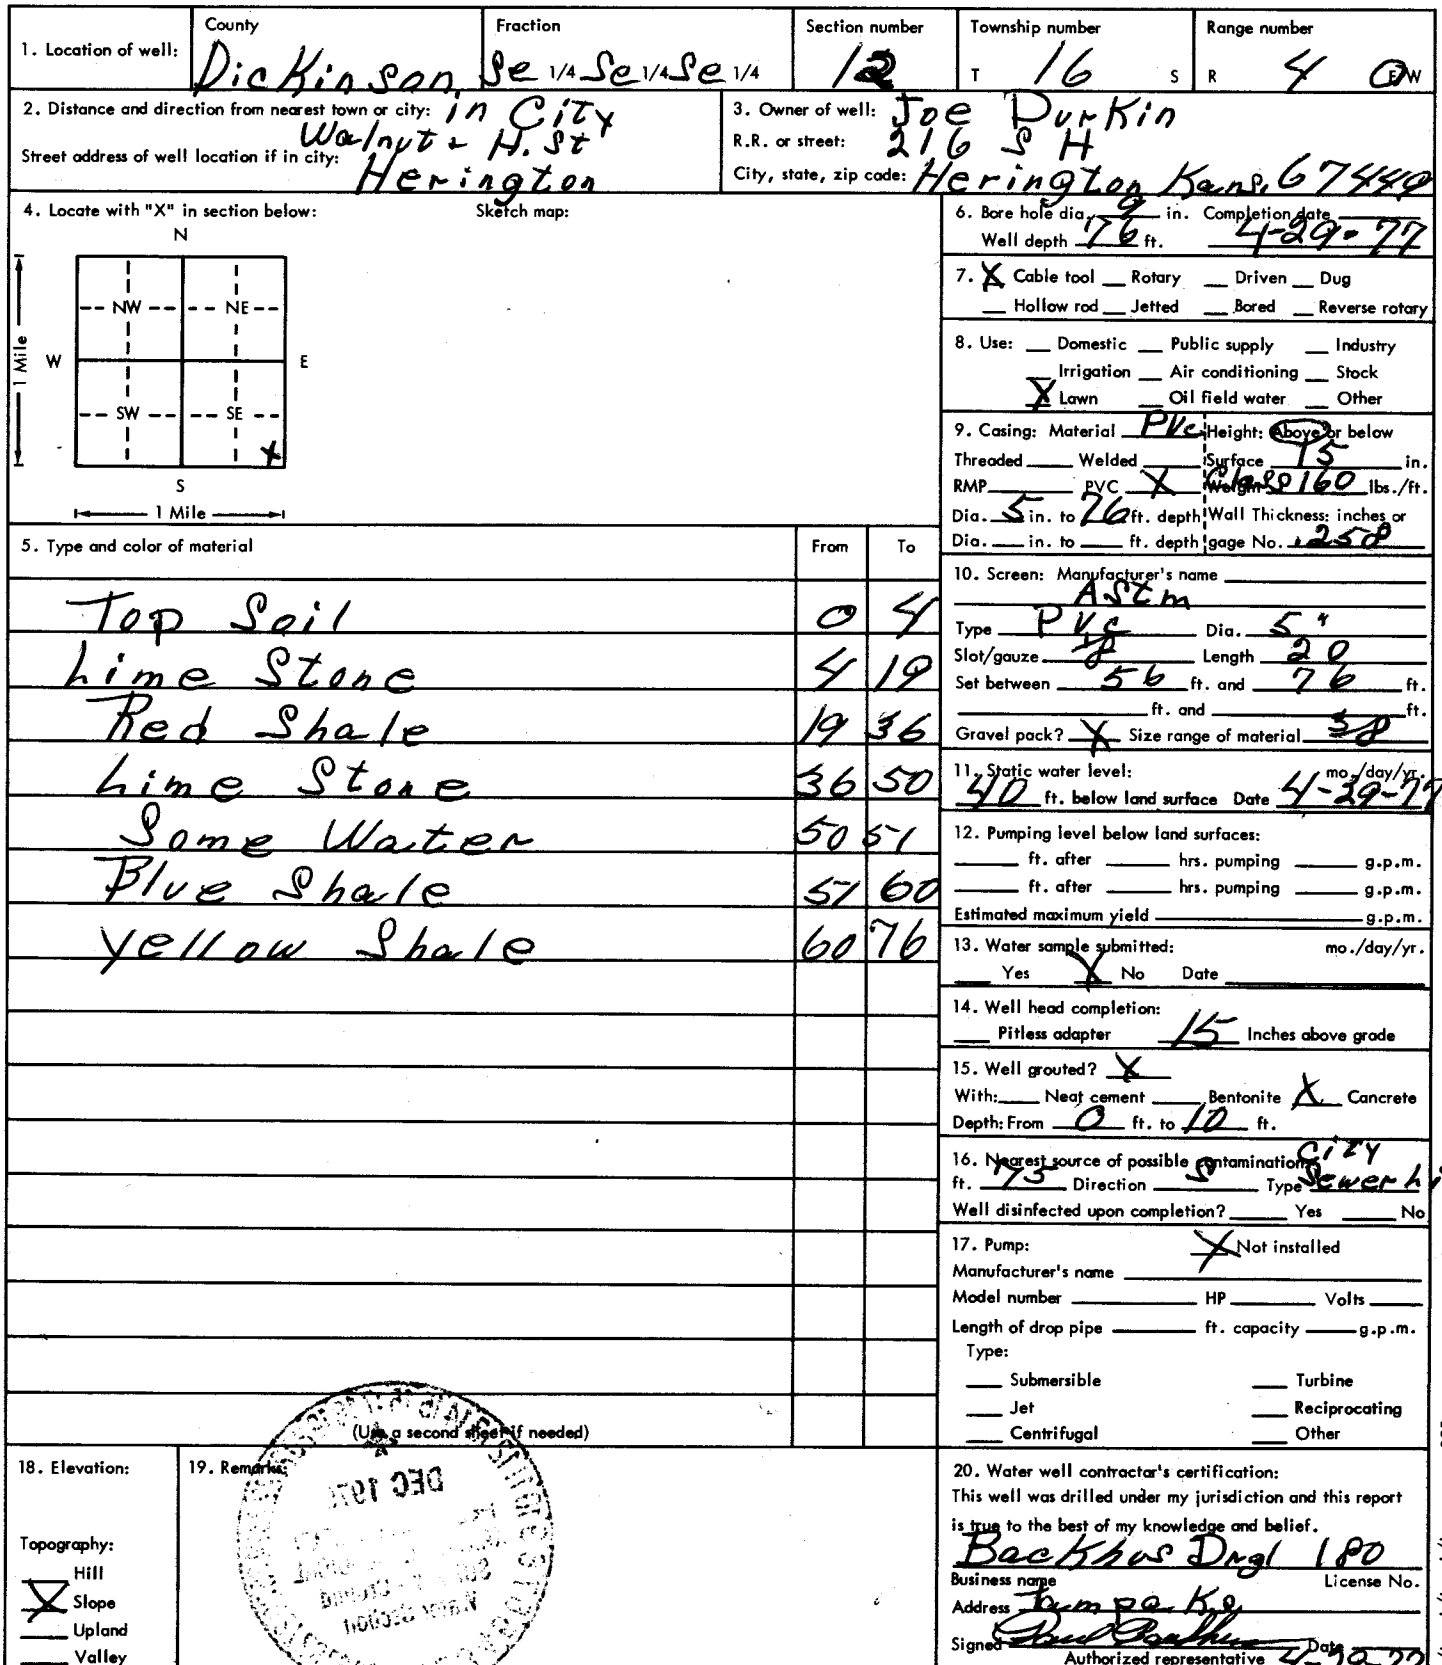 1. Location of well: County Fraction Section number Township number Range number
Dickinson Se 1/4 Se 1/4 Se 1/4 12 T 16 S R 4 E/W
2. Distance and direction from nearest town or city: in City
Walnut & H. St
Street address of well location if in city:
Herington
3. Owner of well: Joe Durkin
R.R. or street: 216 S H
City, state, zip code: Herington Kans. 67449
4. Locate with "X" in section below: Sketch map:
N
NW NE
W E
SW SE
X
S
1 Mile
1 Mile
5. Type and color of material From To
Top Soil 0 4
Lime Stone 4 19
Red Shale 19 36
Lime Stone 36 50
Some Water 50 51
Blue Shale 51 60
Yellow Shale 60 76
(Use a second sheet if needed)
6. Bore hole dia. 9 in. Completion date
Well depth 76 ft. 4-29-77
7. X Cable tool Rotary Driven Dug
Hollow rod Jetted Bored Reverse rotary
8. Use: Domestic Public supply Industry
Irrigation Air conditioning Stock
X Lawn Oil field water Other
9. Casing: Material PVC Height: Above or below
Threaded Welded Surface 15 in.
RMP PVC X Weight Class 160 lbs./ft.
Dia. 5 in. to 76 ft. depth Wall Thickness: inches or
Dia. in. to ft. depth gage No. .258
10. Screen: Manufacturer's name
Astm
Type PVC Dia. 5"
Slot/gauze 1/8 Length 20
Set between 56 ft. and 76 ft.
ft. and ft.
Gravel pack? X Size range of material 3/8
11. Static water level: mo./day/yr.
40 ft. below land surface Date 4-29-77
12. Pumping level below land surfaces:
ft. after hrs. pumping g.p.m.
ft. after hrs. pumping g.p.m.
Estimated maximum yield g.p.m.
13. Water sample submitted: mo./day/yr.
Yes X No Date
14. Well head completion:
Pitless adapter 15 Inches above grade
15. Well grouted? X
With: Neat cement Bentonite X Concrete
Depth: From 0 ft. to 10 ft.
16. Nearest source of possible contamination: City
ft. 75 Direction S Type Sewer Li
Well disinfected upon completion? Yes No
17. Pump: X Not installed
Manufacturer's name
Model number HP Volts
Length of drop pipe ft. capacity g.p.m.
Type:
Submersible Turbine
Jet Reciprocating
Centrifugal Other
18. Elevation:
Topography:
Hill
X Slope
Upland
Valley
19. Remarks:
DEC 197
Water Section
20. Water well contractor's certification:
This well was drilled under my jurisdiction and this report
is true to the best of my knowledge and belief.
Backhus Drgl 180
Business name License No.
Address Tampa Ks
Signed Date
Authorized representative 4-29-77